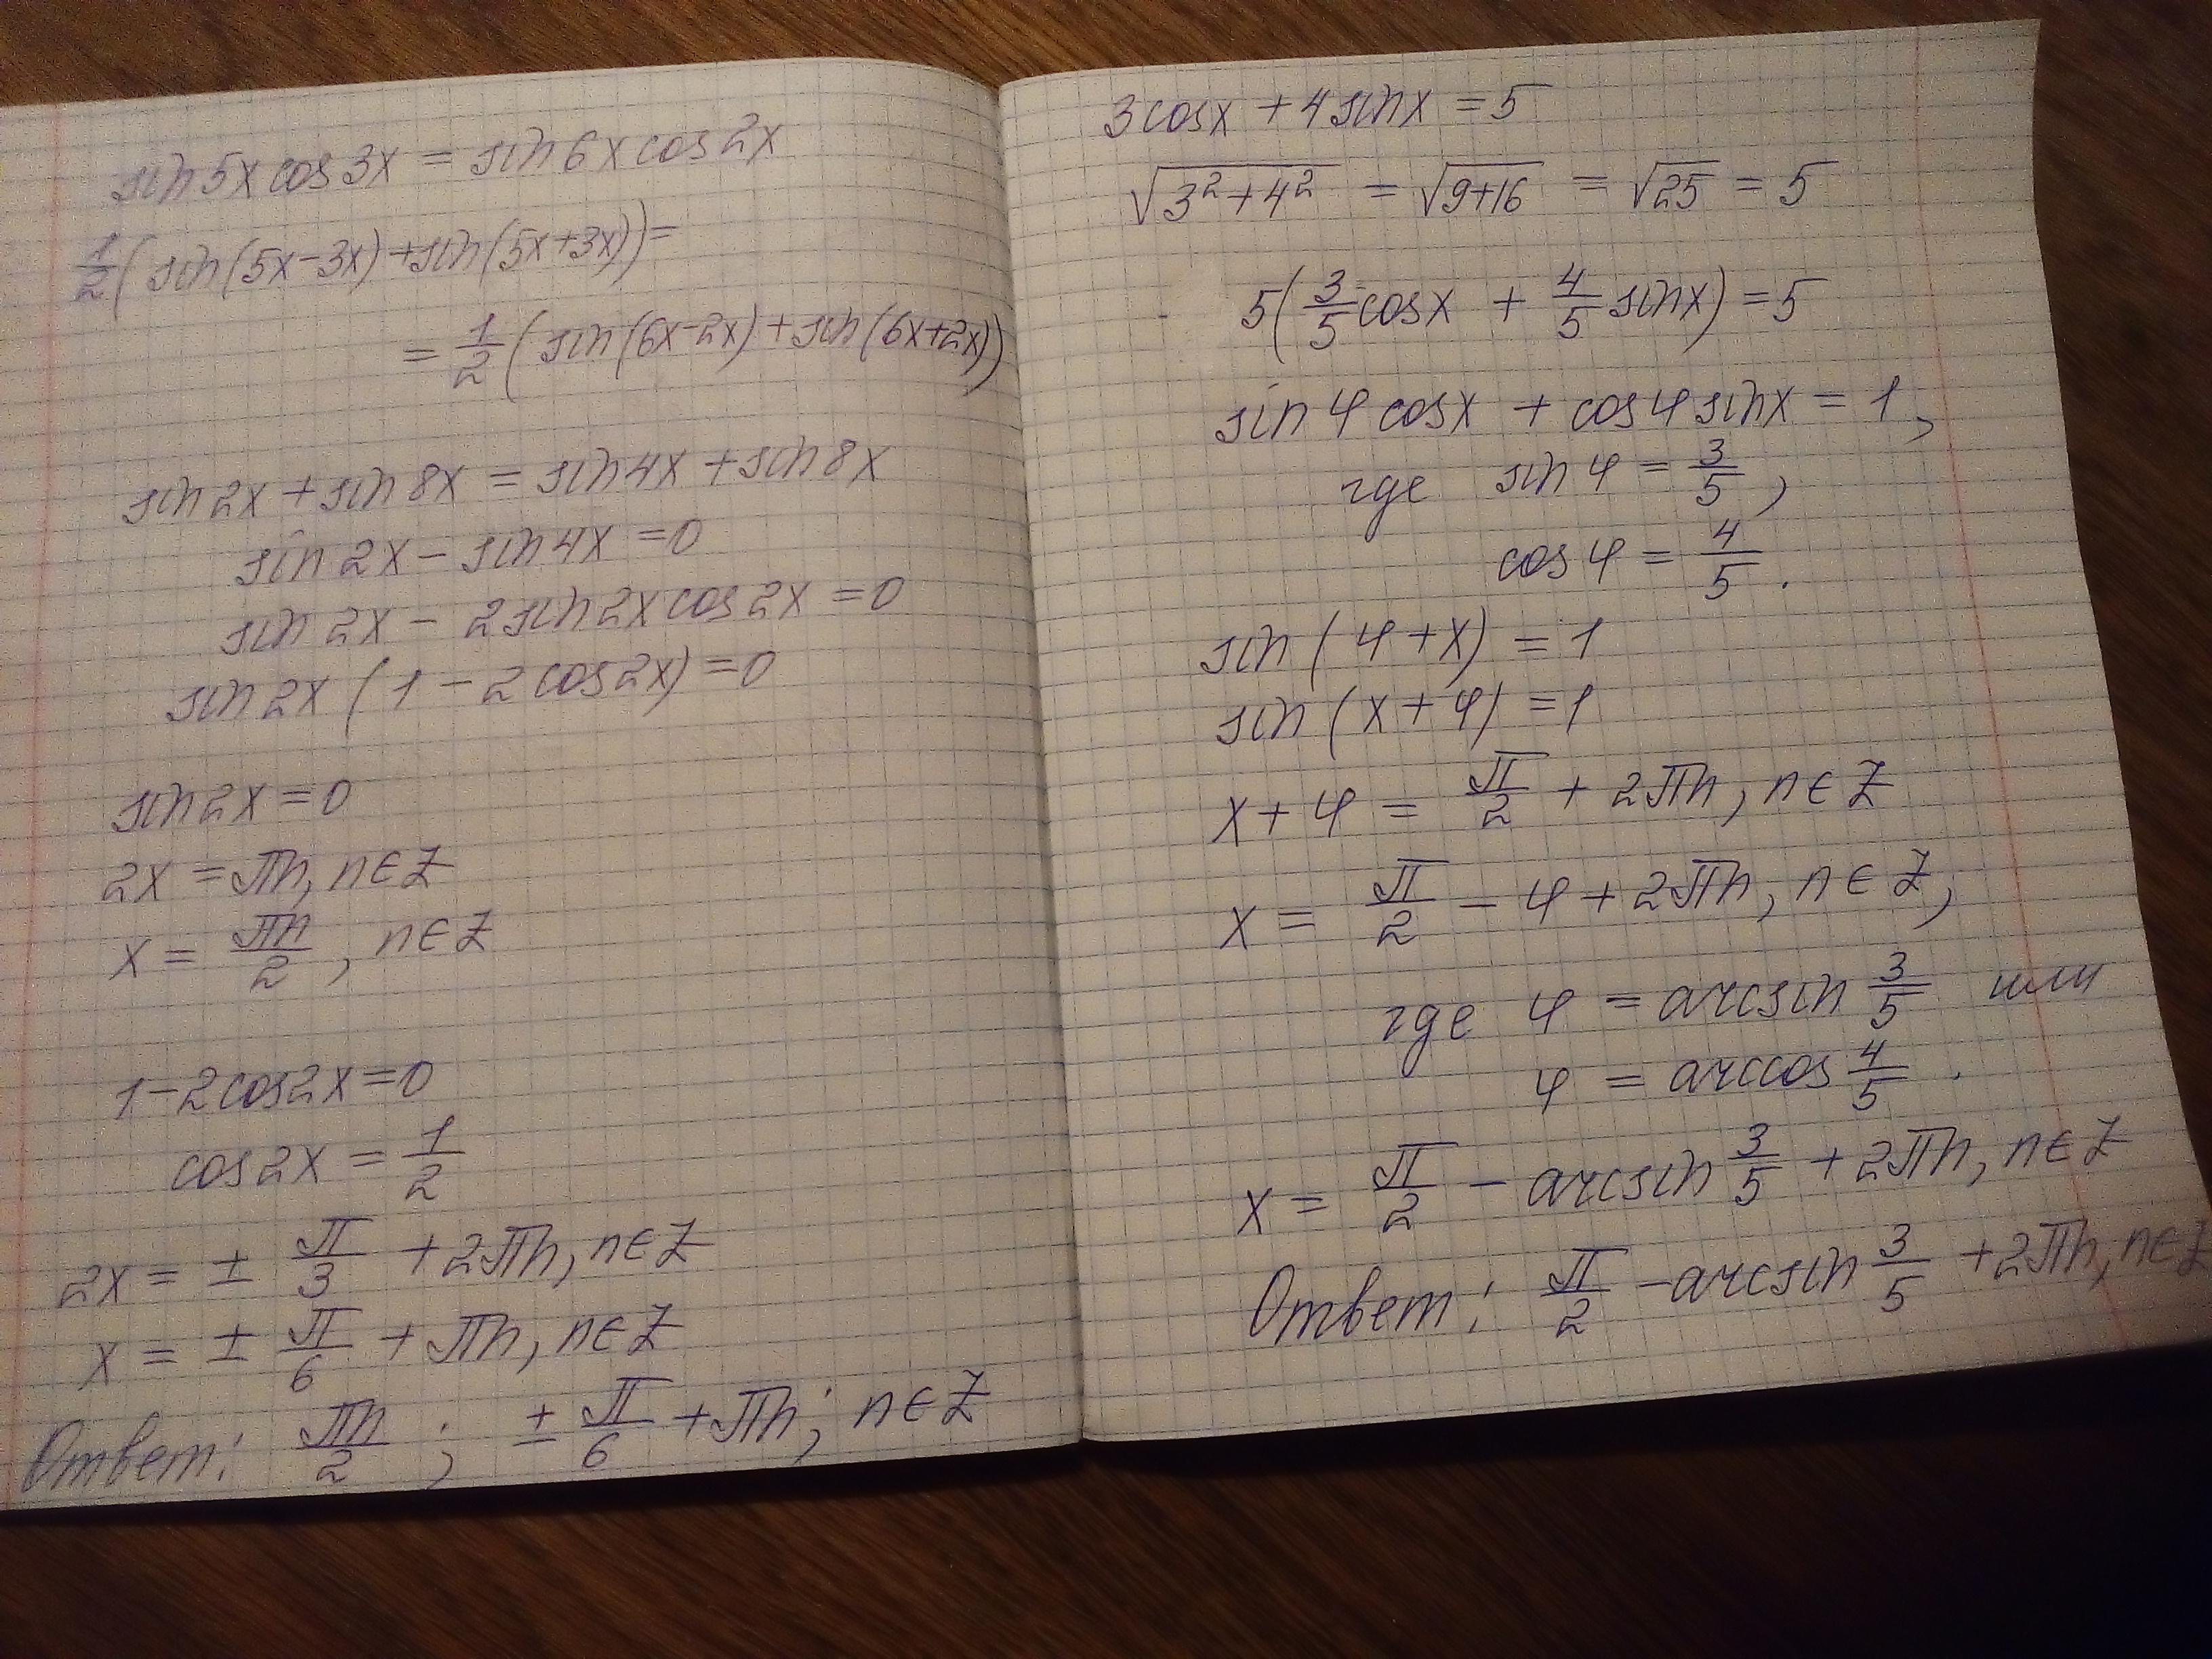 sin5x cos3x = sin6x cos2x
1/2 (sin(5x-3x)+sin(5x+3x))=
= 1/2 (sin(6x-2x)+sin(6x+2x))
sin2x + sin8x = sin4x + sin8x
sin2x - sin4x = 0
sin2x - 2sin2x cos2x = 0
sin2x (1 - 2cos2x) = 0
sin2x = 0
2x = πn, n∈Z
x = πn/2, n∈Z
1-2cos2x=0
cos2x = 1/2
2x = ± π/3 + 2πn, n∈Z
x = ± π/6 + πn, n∈Z
Ответ: πn/2 ; ± π/6 + πn; n∈Z
3cosx + 4sinx = 5
√(3²+4²) = √(9+16) = √25 = 5
5(3/5 cosx + 4/5 sinx) = 5
sinφ cosx + cosφ sinx = 1,
где sinφ = 3/5,
cosφ = 4/5.
sin(φ+x) = 1
sin(x+φ) = 1
x+φ = π/2 + 2πn, n∈Z
x = π/2 - φ + 2πn, n∈Z,
где φ = arcsin 3/5 или
φ = arccos 4/5.
x = π/2 - arcsin 3/5 + 2πn, n∈Z
Ответ: π/2 - arcsin 3/5 + 2πn, n∈Z